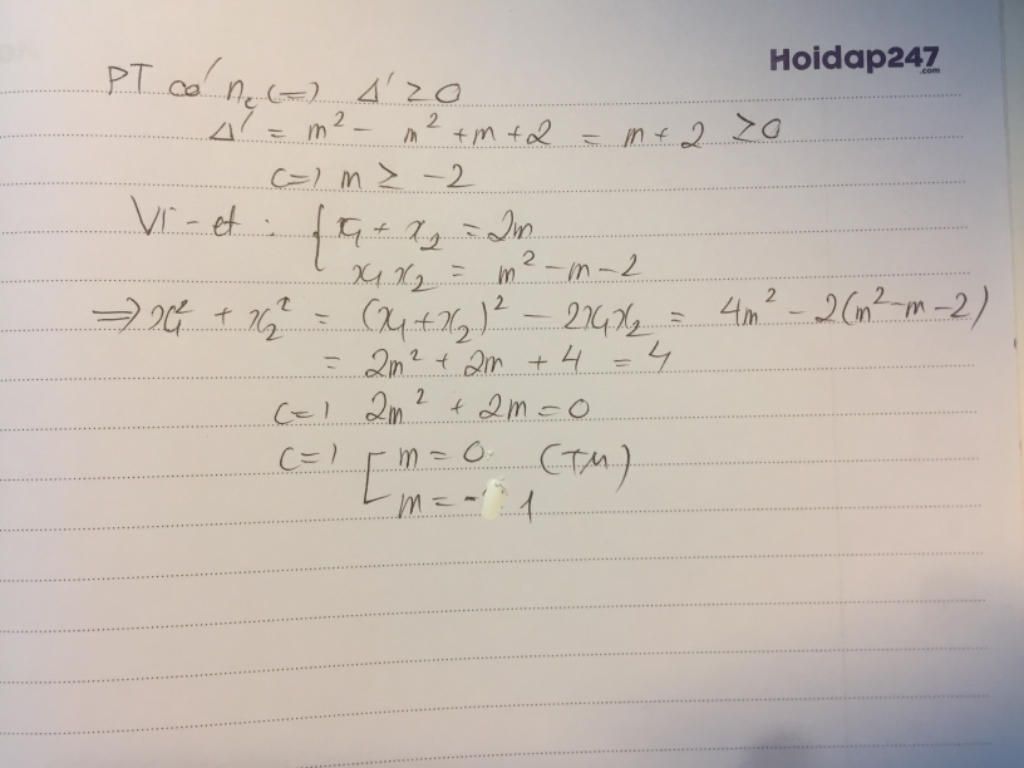 Hoidap247
.com
PT có n₀ (=) Δ' ≥ 0
Δ' = m² - m² + m + 2 = m + 2 ≥ 0
(=) m ≥ -2
Vi-et : { x₁ + x₂ = 2m
x₁x₂ = m² - m - 2
=> x₁² + x₂² = (x₁+x₂)² - 2x₁x₂ = 4m² - 2(m²-m-2)
= 2m² + 2m + 4 = 4
(=) 2m² + 2m = 0
(=) [ m = 0 (TM)
m = - 1